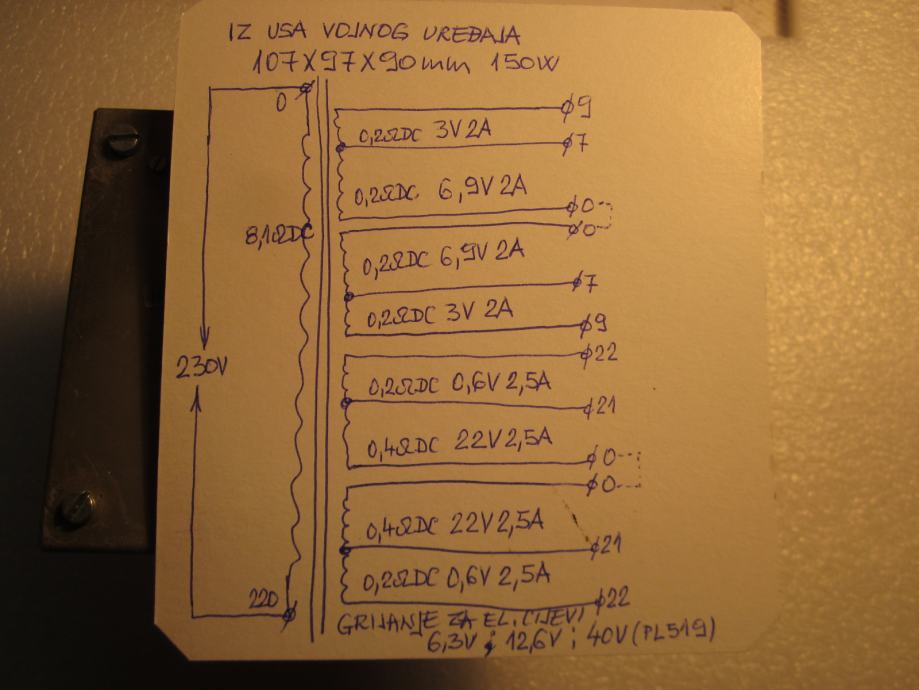 IZ USA VOJNOG UREĐAJA
107X97X90mm 150W
0
9
0,2ΩDC 3V 2A
7
0,2ΩDC 6,9V 2A
0
0
8,1ΩDC
0,2ΩDC 6,9V 2A
7
0,2ΩDC 3V 2A
9
22
230V
0,2ΩDC 0,6V 2,5A
21
0,4ΩDC 22V 2,5A
0
0
0,4ΩDC 22V 2,5A
21
0,2ΩDC 0,6V 2,5A
220
22
GRIJANJE ZA EL. CIJEVI
6,3V i 12,6V i 40V (PL519)